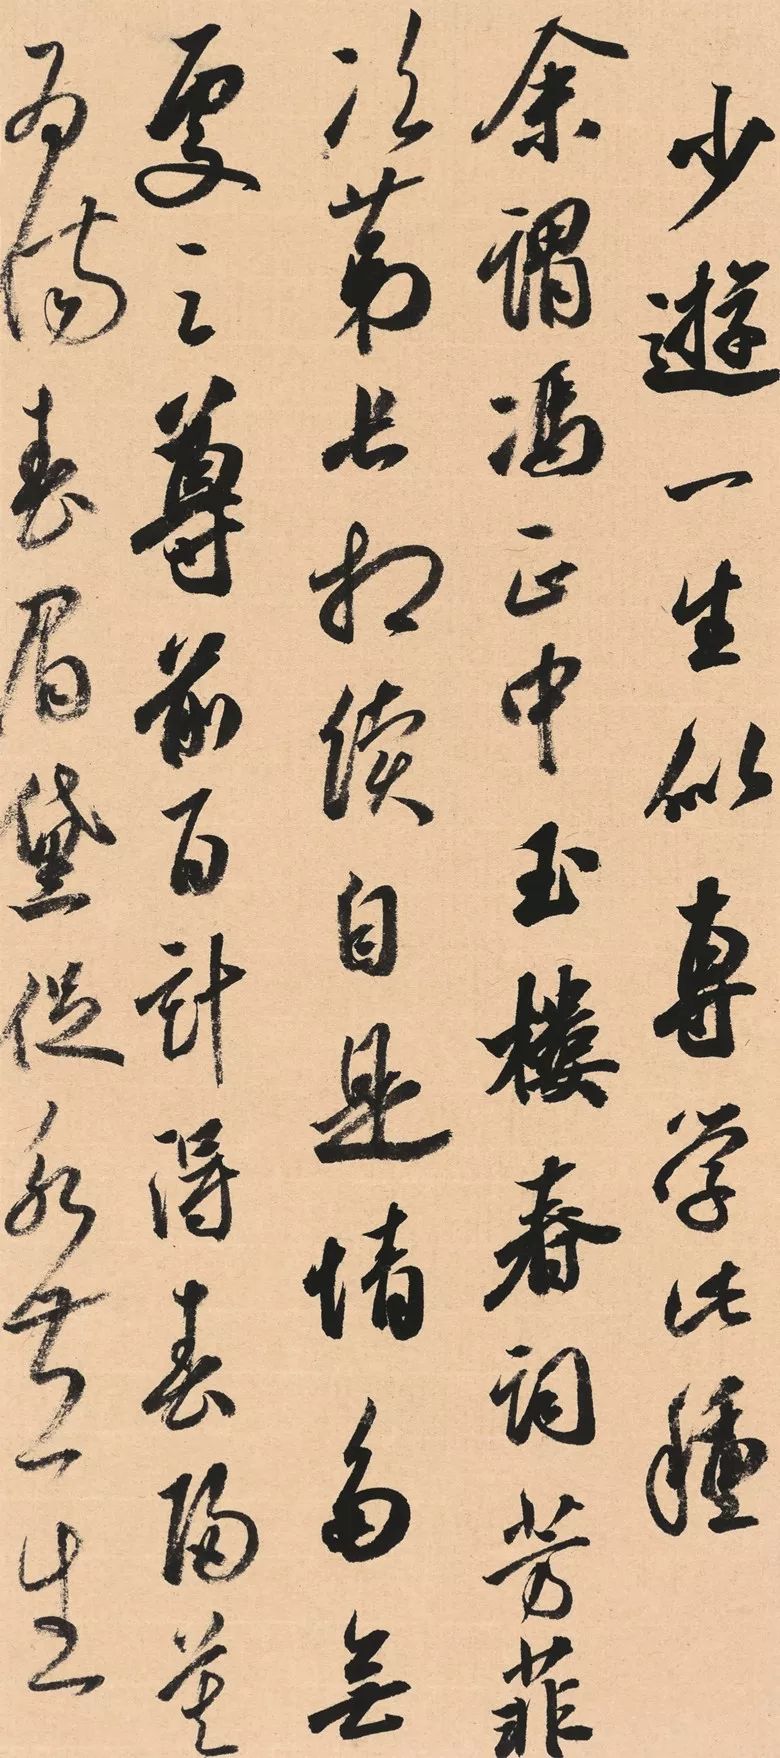 少遊一生似專学此種
余謂馮正中玉樓春詞芳菲
次第長相續自是情多無
處足尊前百計得春歸莫
為傷春眉黛促永叔一生